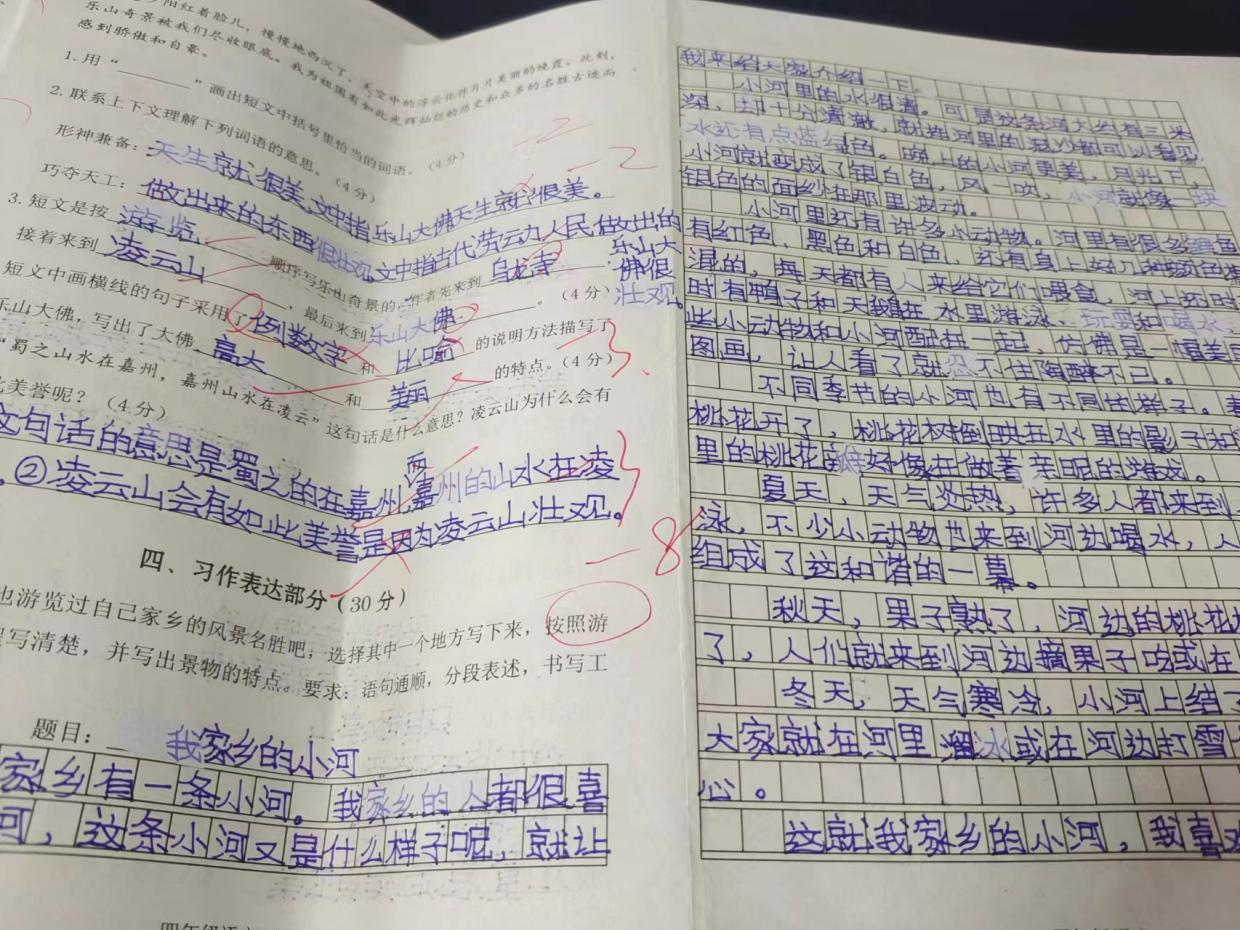 阳红着脸儿，慢慢地西沉了，天空中的浮云化作片片美丽的晚霞。此刻，
乐山奇景被我们尽收眼底。我为祖国有如此光辉灿烂的历史和众多的名胜古迹而
感到骄傲和自豪。
1.用“______”画出短文中括号里恰当的词语。（4分）
2.联系上下文理解下列词语的意思。（4分）
-2
形神兼备：天生就很美，文中指乐山大佛天生就很美。
-2
巧夺天工：做出来的东西很壮观，文中指古代劳动人民做出的乐山大佛很壮观。
3.短文是按游览顺序写乐山奇景的，作者先来到乌龙寺，
接着来到凌云山，最后来到乐山大佛。（4分）
短文中画横线的句子采用了例数字和比喻的说明方法描写了
乐山大佛，写出了大佛高大和美丽的特点。（4分）
“蜀之山水在嘉州，嘉州山水在凌云”这句话是什么意思？凌云山为什么会有
此美誉呢？（4分）
文句话的意思是蜀之的在嘉州，而嘉州的山水在凌
②凌云山会有如此美誉是因为凌云山壮观。
-8
四、习作表达部分（30分）
也游览过自己家乡的风景名胜吧，选择其中一个地方写下来，按照游
写清楚，并写出景物的特点。要求：语句通顺，分段表述，书写工
题目：我家乡的小河
家乡有一条小河。我家乡的人都很喜
河，这条小河又是什么样子呢，就让
我来给大家介绍一下。
小河里的水很清。可是这条河大约有三米
深，却十分清澈，就连河里的泥沙都可以看见，
水还有点蓝绿色。晚上的小河更美，月光下，
小河就变成了银白色，风一吹，小河就像一块
银色的面纱在那里波动。
小河里还有许多小动物。河里有很多鱼色
有红色，黑色和白色，还有身上好几种颜色
混的，每天都有人来给它们喂食，河上死时
时有鸭子和天鹅在水里游泳、玩耍和喝水
些小动物和小河融在一起，仿佛是一幅美
图画，让人看了就忍不住陶醉不已。
不同季节的小河也有不同的样子。春
桃花开了，桃花树倒映在水里的影子和
里的桃花好像在做着亲昵的游戏。
夏天，天气炎热，许多人都来到
泳，不少小动物也来到河边喝水，人
组成了这和谐的一幕。
秋天，果子熟了，河边的桃花
了，人们就来到河边摘果子吃或在
冬天，天气寒冷，小河上结
大家就在河里溜冰或在河边打雪
心。
这就我家乡的小河，我喜欢